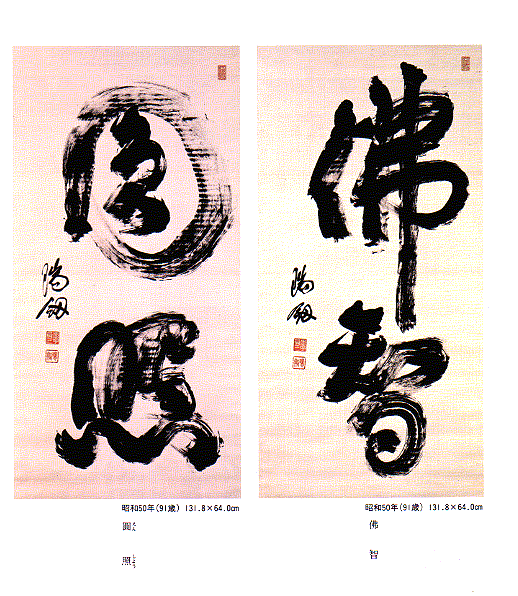 佛智
瑞劔
圓照
瑞劔
昭和50年(91歳) 131.8×64.0cm
佛智
昭和50年(91歳) 131.8×64.0cm
圓照